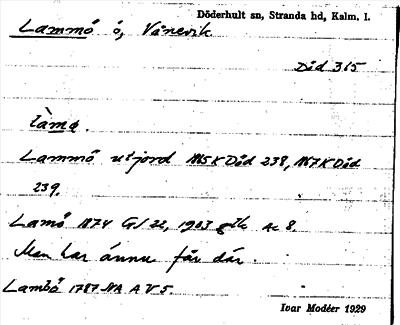 Döderhult sn, Stranda hd, Kalm. l.
Lammö ö, Vånevik
Död 365
làmə.
Lammö utjord 1865 K Död 238, 1867 K Död
239.
Lamö 1874 G/22, 1903 gtk Ac 8.
Man har ännu får där.
Lambö 1787 NA A V 5.
Ivar Modéer 1929